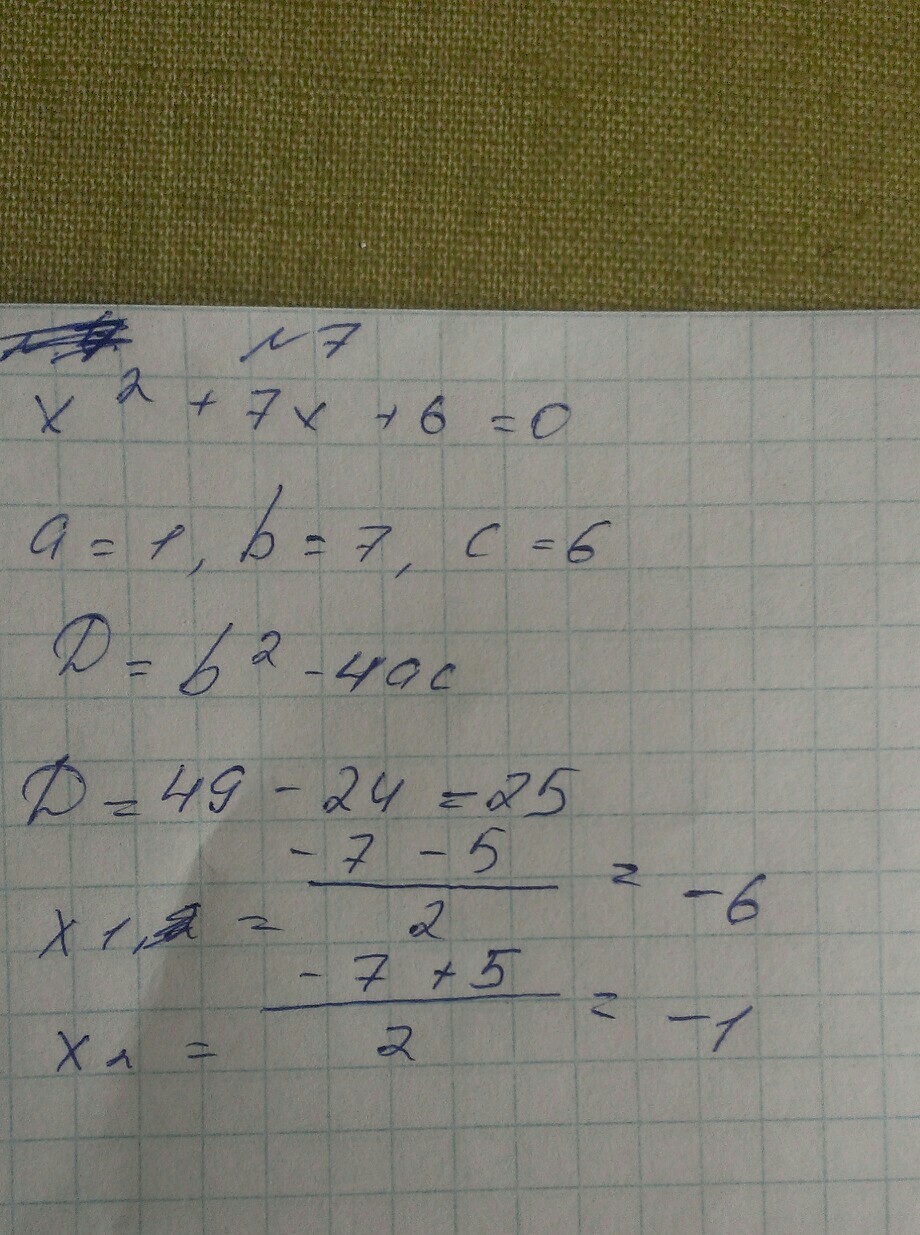 №7
x² + 7x + 6 = 0
a = 1, b = 7, c = 6
D = b² - 4ac
D = 49 - 24 = 25
x1, = (-7 - 5)/2 = -6
x2 = (-7 + 5)/2 = -1